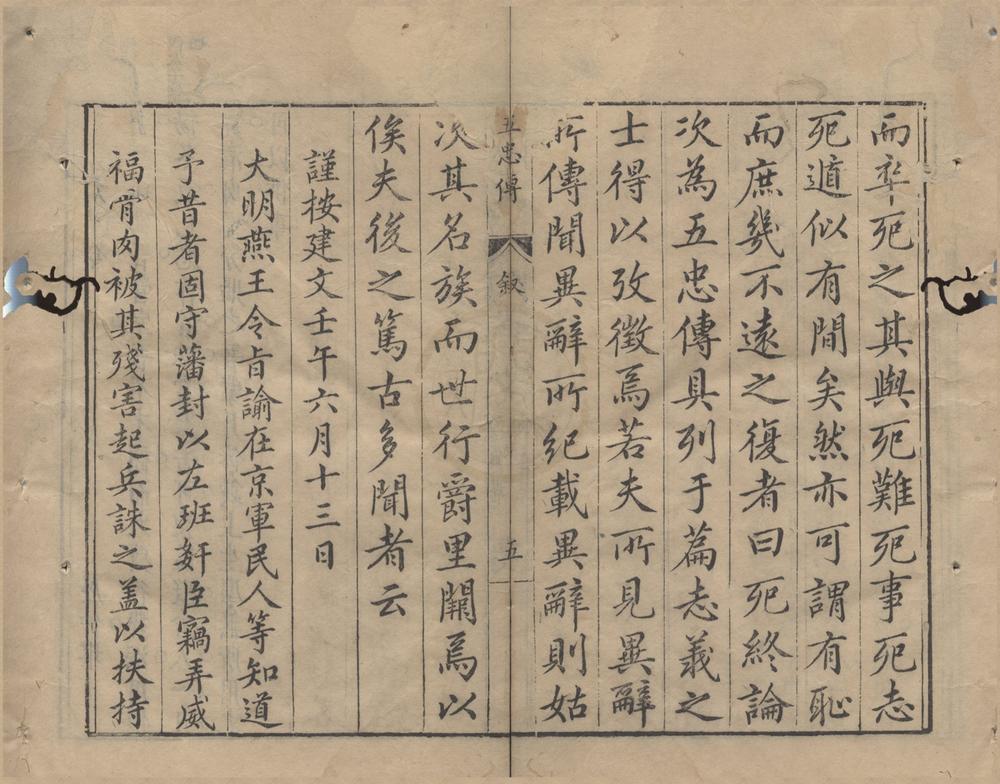 而卒死之其與死難死事死志
死遁似有間矣然亦可謂有恥
而庶幾不遠之復者曰死終論
次為五忠傳具列于篇志義之
士得以攷徵焉若夫所見異辭
所傳聞異辭所紀載異辭則姑
五忠傳 叙 五
次其名族而世行爵里闕焉以
俟夫後之篤古多聞者云
謹按建文壬午六月十三日
大明燕王令旨諭在京軍民人等知道
予昔者固守藩封以左班奸臣竊弄威
福骨肉被其殘害起兵誅之盖以扶持